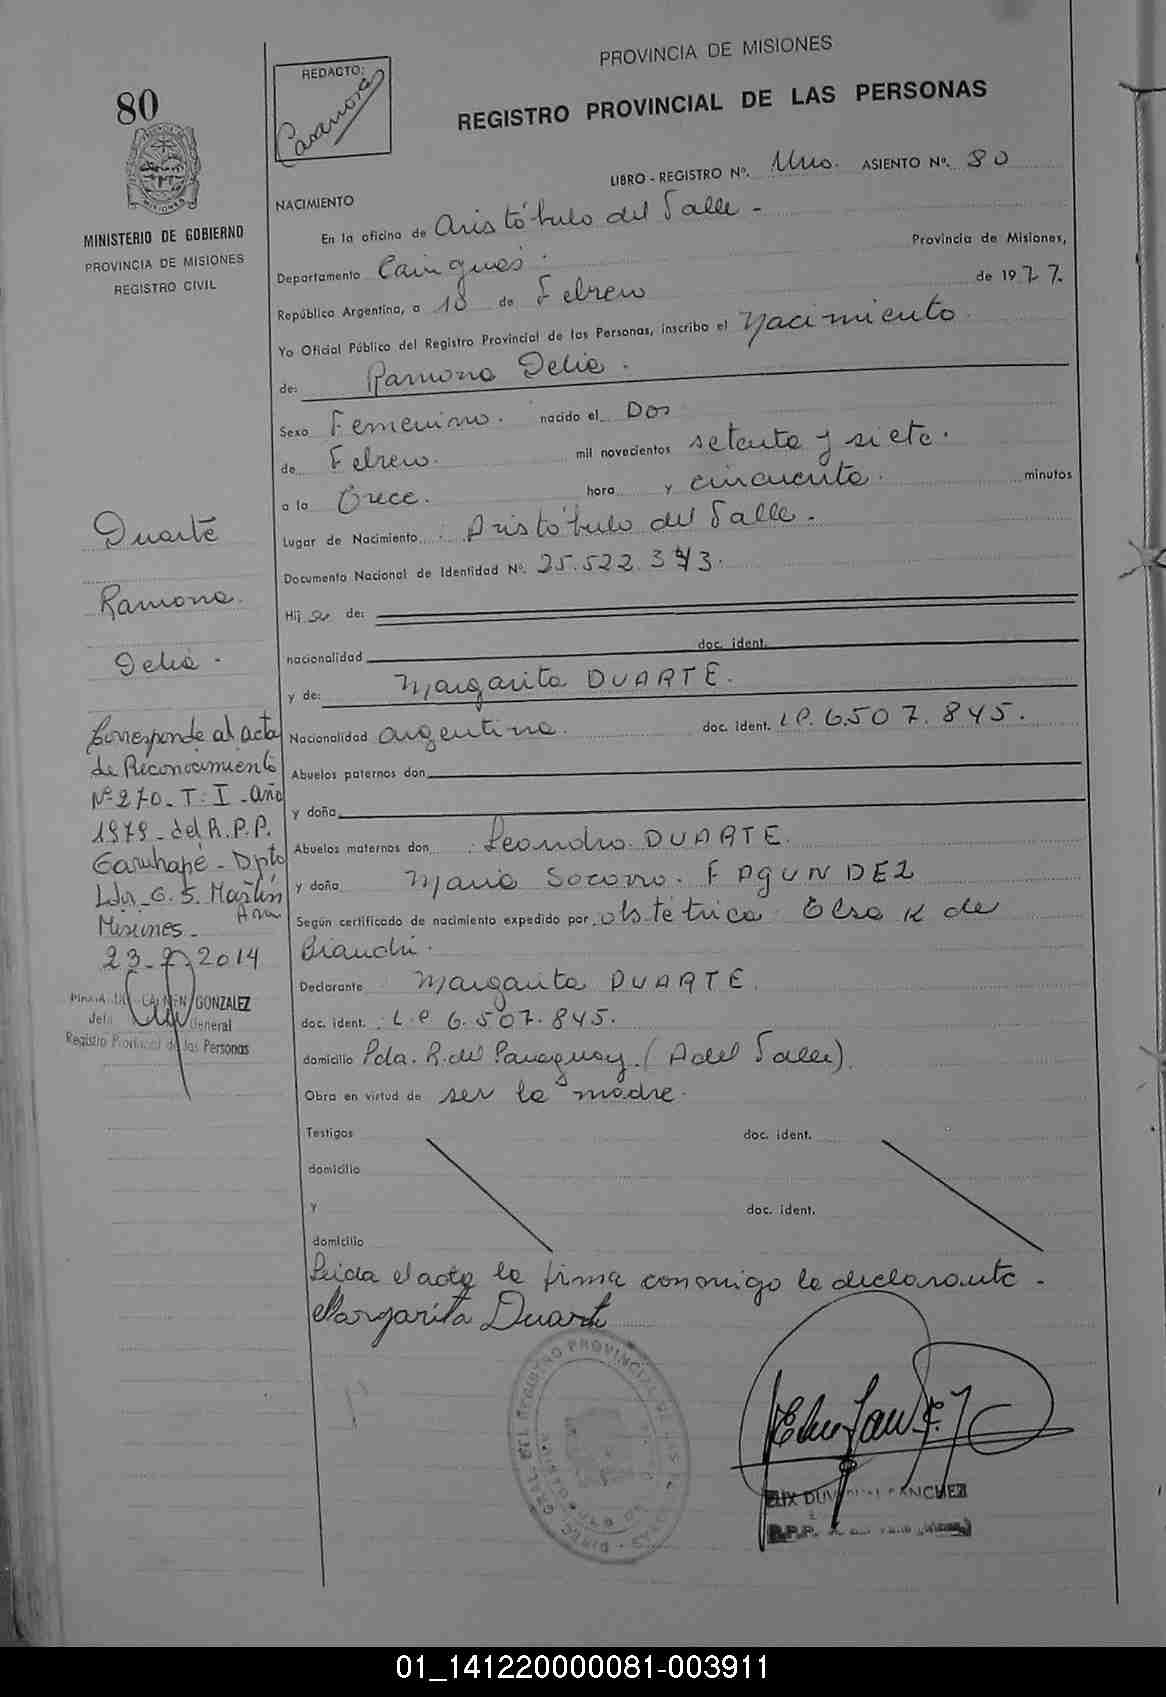 PROVINCIA DE MISIONES
REGISTRO PROVINCIAL DE LAS PERSONAS
80
REDACTO:
Casanova
LIBRO - REGISTRO Nº. Uno. ASIENTO Nº. 80
MINISTERIO DE GOBIERNO
PROVINCIA DE MISIONES
REGISTRO CIVIL
NACIMIENTO
En la oficina de Aristóbulo del Valle -
Departamento Cainguás. Provincia de Misiones,
República Argentina, a 18 de Febrero de 1977.
Yo Oficial Público del Registro Provincial de las Personas, inscribo el Nacimiento
de: Ramona Delia.
Sexo Femenino. nacido el Dos
de Febrero. mil novecientos setenta y siete.
a la Trece. hora y cincuenta. minutos
Lugar de Nacimiento Aristóbulo del Valle.
Documento Nacional de Identidad Nº. 25.522.373.
Hij a de:
nacionalidad doc. ident.
y de: Margarita DUARTE.
Nacionalidad argentina. doc. ident. LP. 6.507.845.
Abuelos paternos don
y doña
Abuelos maternos don Leandro DUARTE.
y doña Maria Socorro. FAGUNDEZ
Según certificado de nacimiento expedido por obstétrica Elsa K de
Bianchi.
Declarante Margarita DUARTE.
doc. ident. L.P 6.507.845.
domicilio Pda. R. del Paraguay. (A del Valle).
Obra en virtud de ser la madre.
Testigos doc. ident.
domicilio
y doc. ident.
domicilio
Leida el acta la firma conmigo la declarante -
Margarita Duarte
Duarte
Ramona.
Delia.
Corresponde al acta
de Reconocimiento
Nº 270 - T: I - Año
1979 - del R.P.P.
Garuhapé - Dpto
Ldor G. S. Martín
Misiones -
23-7-2014
GONZALEZ
Jefa General
Registro Provincial de las Personas
DUVAL SANCHEZ
R.P.P.
01_141220000081-003911